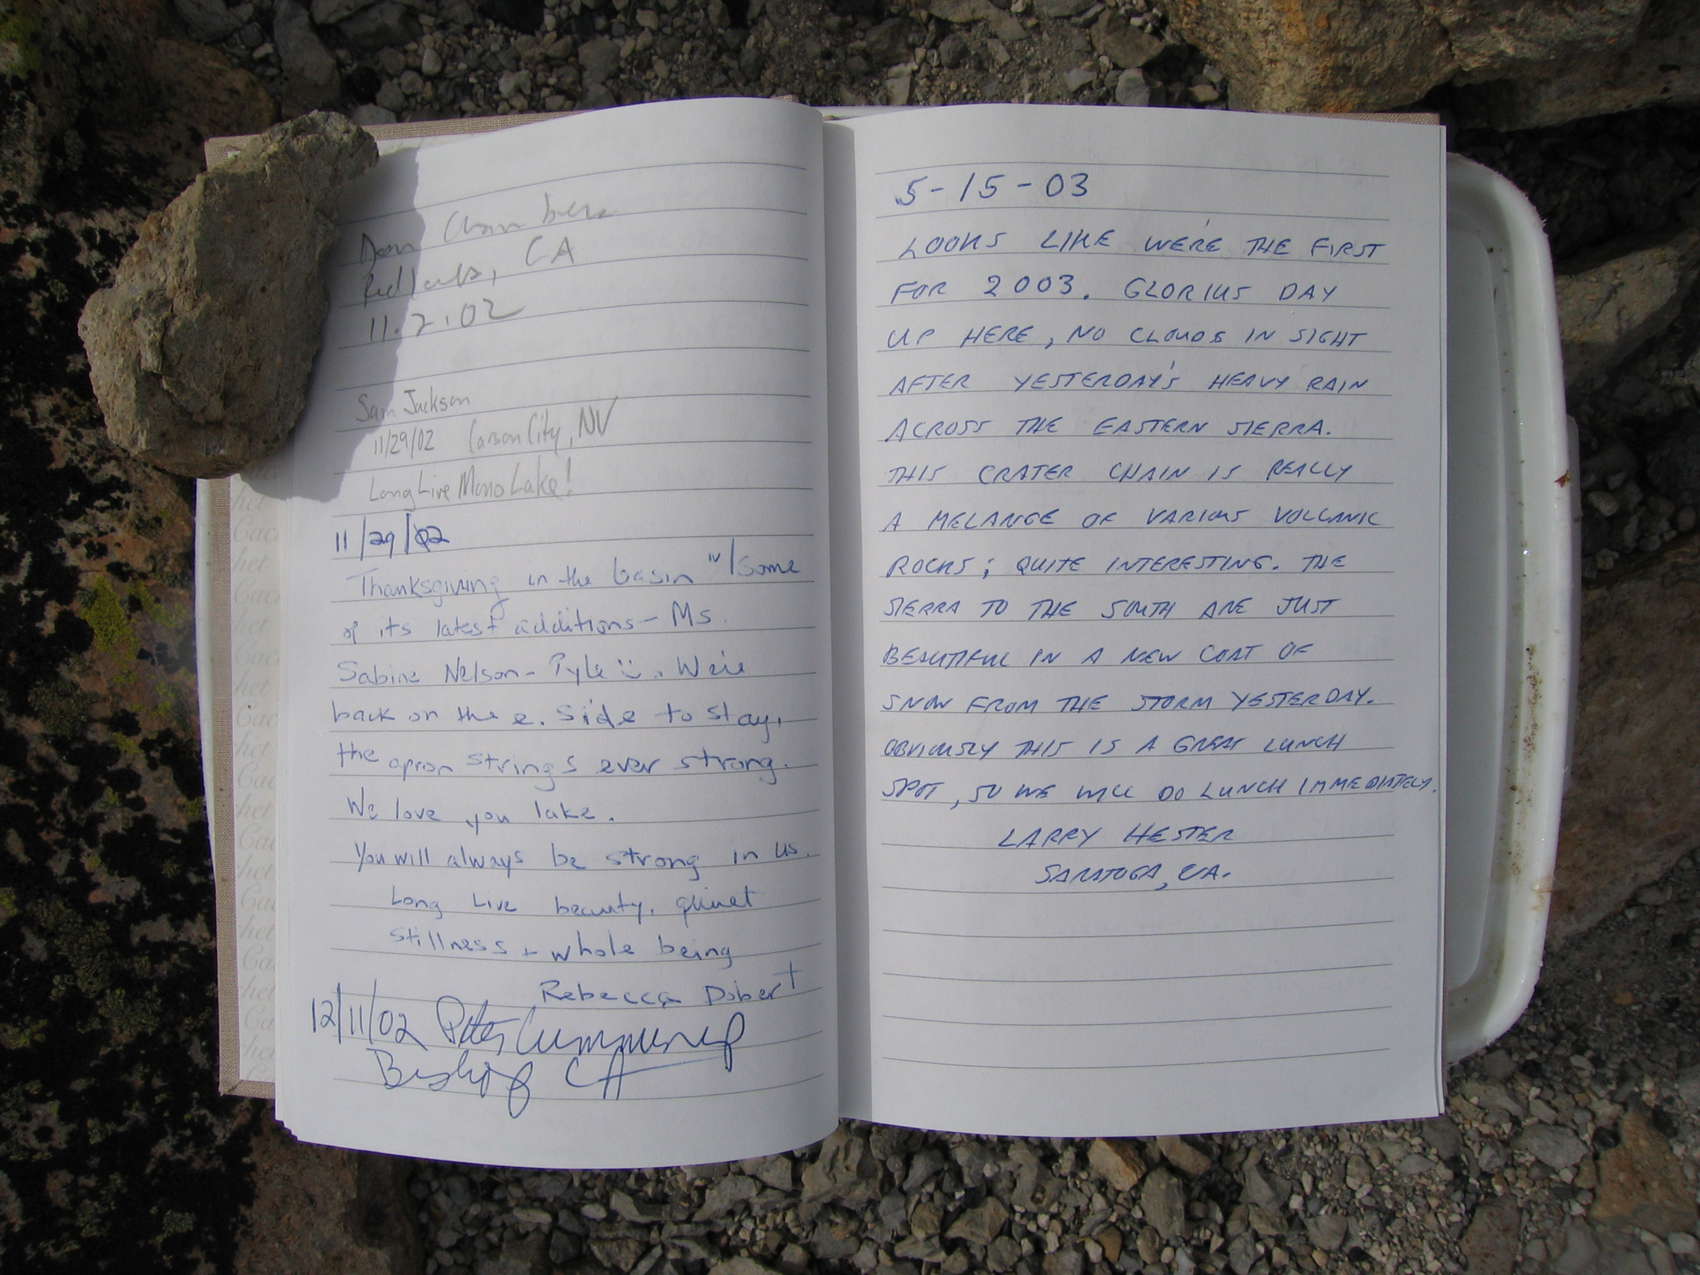 Dean Chambers
Redlands, CA
11.2.02
Sam Jackson
11/29/02 Carson City, NV
Long Live Mono Lake!
11/29/02
Thanksgiving in the basin w/some
of its latest additions - Ms.
Sabine Nelson-Pyle :) . We're
back on the e. side to stay,
the apron strings ever strong.
We love you lake.
You will always be strong in us.
Long Live beauty, quiet
stillness + whole being
Rebecca Dobert
12/11/02 Peter Cummings
Bishop CA
5-15-03
LOOKS LIKE WE'RE THE FIRST
FOR 2003. GLORIUS DAY
UP HERE, NO CLOUDS IN SIGHT
AFTER YESTERDAY'S HEAVY RAIN
ACROSS THE EASTERN SIERRA.
THIS CRATER CHAIN IS REALLY
A MELANGE OF VARIOUS VOLCANIC
ROCKS; QUITE INTERESTING. THE
SIERRA TO THE SOUTH ARE JUST
BEAUTIFUL IN A NEW COAT OF
SNOW FROM THE STORM YESTERDAY.
OBVIOUSLY THIS IS A GREAT LUNCH
SPOT, SO WE WILL DO LUNCH IMMEDIATELY.
LARRY HESTER
SARATOGA, CA.